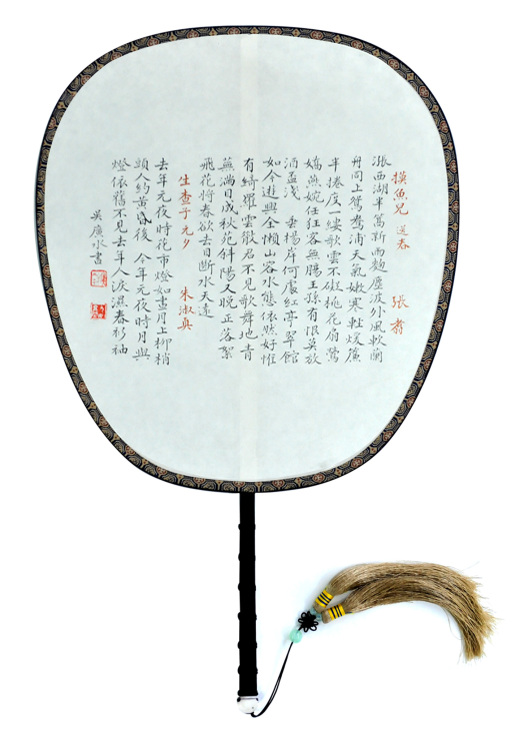 摸魚兒 送春 張翥
漲西湖半篙新雨麴塵波外風軟蘭
舟同上鴛鴦浦天氣嫩寒軽煖簾
半捲度一縷歌雲不礙桃花扇鶯
嬌燕婉任狂客無腸王孫有恨莫放
酒盃淺 垂楊岸何處紅亭翠館
如今遊興全懶山容水態依然好惟
有綺羅雲散君不見歌舞地青
蕪滿目成秋苑斜陽又晚正落絮
飛花將春欲去目断水天遠
生查子 元夕 朱淑真
去年元夜時花市燈如晝月上柳梢
頭人約黃昏後 今年元夜時月與
燈依舊不見去年人淚濕春衫袖
吳廣水書